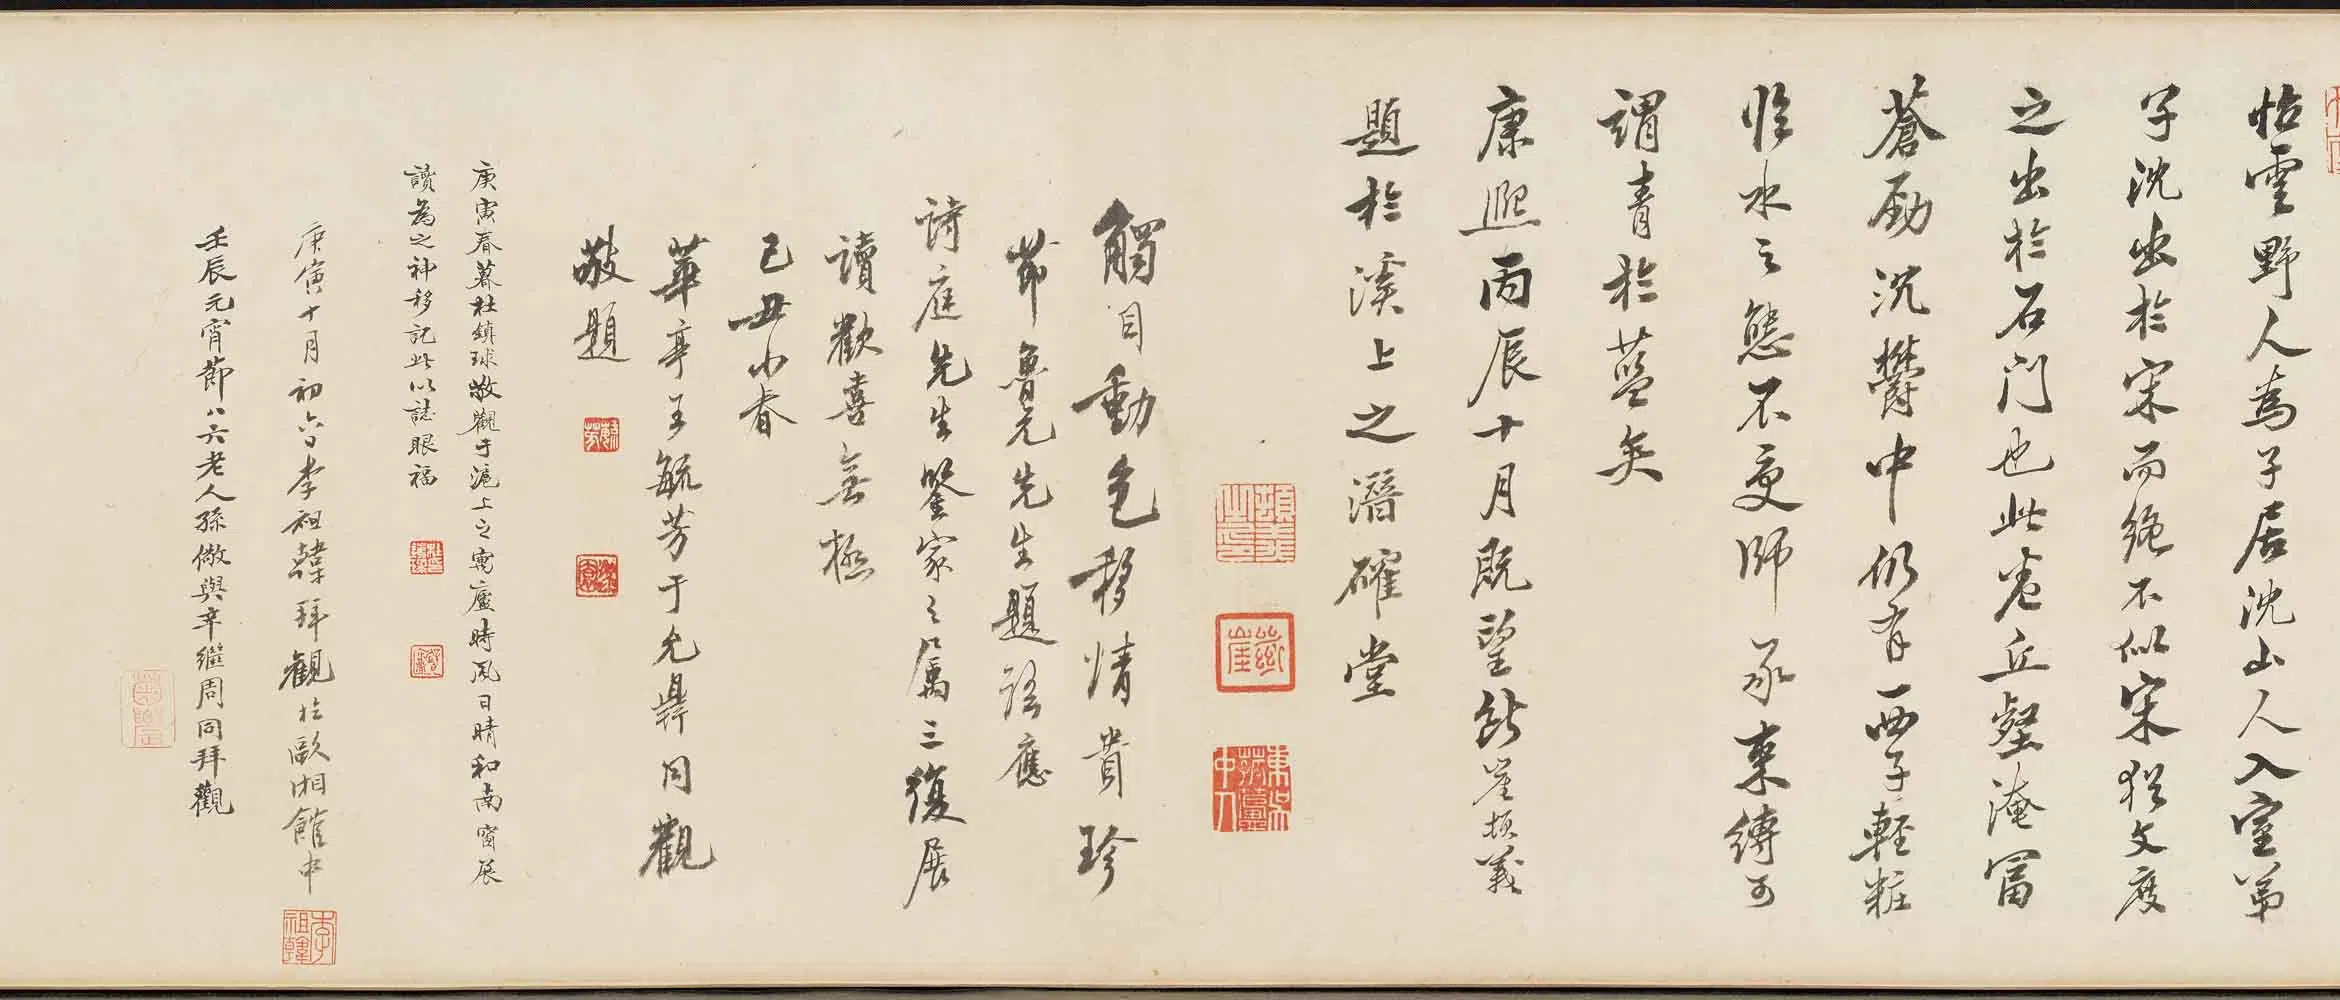 怡雲野人為子居沈山人入室弟
子沈出於宋而絕不似宋猶文度
之出於石門也此卷丘壑淹富
蒼勁沉鬱中仍有西子輕粧
臨水之態不更師承束縛可
謂青於藍矣
康熙丙辰十月既望紫崖頊義
題於溪上之潛確堂
觸目動色移情貴珍
節魯元先生題語應
詩庭先生鑒家之属三復展
讀歡喜無極
己丑小春
華亭王毓芳于允鼎同觀
敬題
庚寅春暮杜鎮球敬觀于滬上之寓廬時風日晴和南窗展
讀為之神移記此以誌眼福
庚寅十月初六日李祖韓拜觀於歐湘館中
壬辰元宵節八六老人孫儆與辛繼周同拜觀
李祖韓